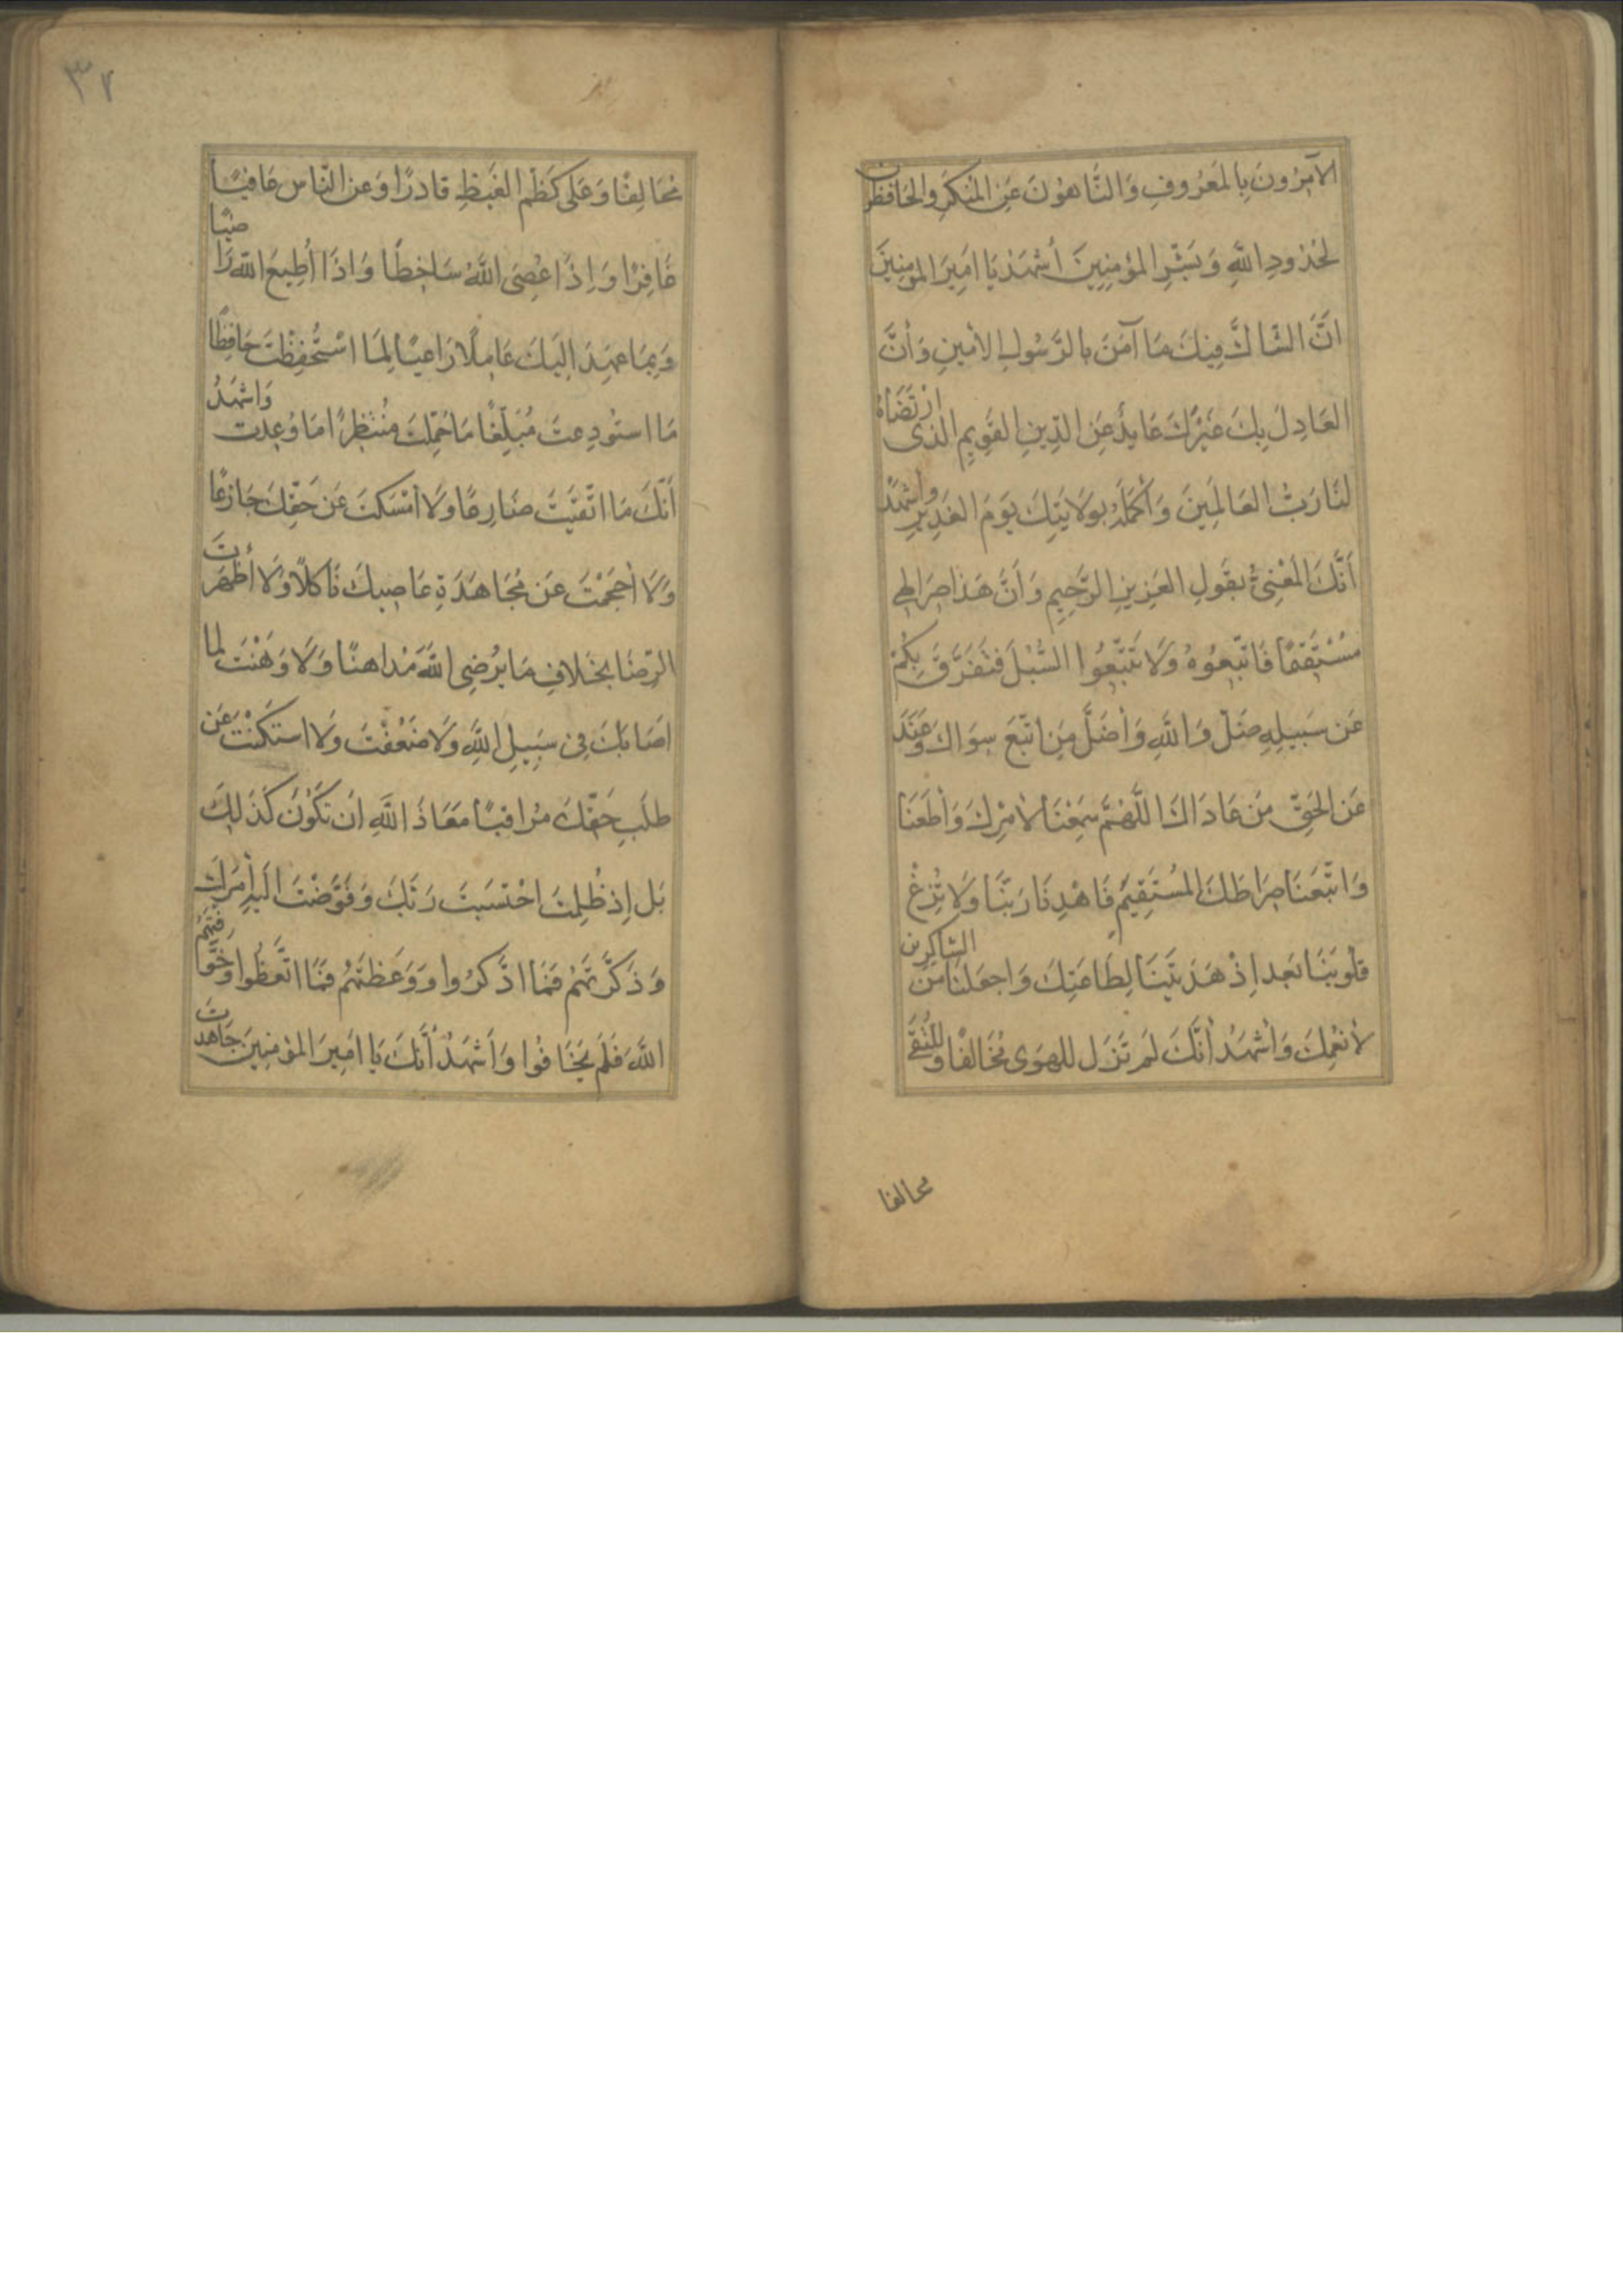 الآمِرُونَ بِالمَعْرُوفِ وَالنَّاهُونَ عَنِ المُنْكَرِ وَالحَافِظُونَ
لِحُدُودِ اللهِ وَبَشِّرِ المُؤْمِنِينَ أَشْهَدُ يَا امِيرَ المُؤمِنِينَ
انَّ الشَّاكَّ فِيكَ مَا آمَنَ بِالرَّسُولِ الأَمِينِ وَأَنَّ
العَادِلَ بِكَ غَيْرَكَ عَانِدٌ عَنِ الدِّينِ القَوِيمِ الَّذى ارْتَضَاهُ
لَنَا رَبُّ العَالَمِينَ وَأَكْمَلَهُ بِوَلَايَتِكَ يَوْمَ الغَدِيرِ وَأَشْهَدُ
أَنَّكَ المَعْنِىُّ بِقَولِ العَزِيزِ الرَّحِيمِ وَأَنَّ هَذَا صِرَاطِى
مُسْتَقِيمًا فَاتَّبِعُوهُ وَلَا تَتَّبِعُوا السُّبُلَ فَتَفَرَّقَ بِكُمْ
عَن سَبِيلِهِ ضَلَّ وَاللهِ وَأَضَلَّ مَنِ اتَّبَعَ سِوَاكَ وَعَنَدَ
عَنِ الحَقِّ مَن عَادَاكَ اللَّهُمَّ سَمِعْنَا لأَمْرِكَ وَأَطَعْنَا
وَاتَّبَعْنَا صِرَاطَكَ المُسْتَقِيمَ فَاهْدِنَا رَبَّنَا وَلَا تُزِغْ
قُلُوبَنَا بَعْدَ اِذْ هَدَيْتَنَا لِطَاعَتِكَ وَاجْعَلْنَا مِنَ الشَّاكِرِينَ
لأَنْعُمِكَ وَأَشْهَدُ أَنَّكَ لَم تَزَل لِلهَوَى مُخَالِفًا وَلِلتُّقَى
محالفا
٣٧
مُحَالِفًا وَعَلَى كَظْمِ الغَيْظِ قَادِرًا وَعَنِ النَّاسِ عَافِيًا
غَافِرًا وَاِذَا عُصِىَ اللهُ سَاخِطًا وَاِذَا أُطِيعَ اللهُ رَاضِيًا
وَبِمَا عَهِدَ اِلَيكَ عَامِلًا رَاعِيًا لِمَا اسْتُحْفِظْتَ حَافِظًا
مَا استُودِعتَ مُبَلِّغًا مَا حُمِّلتَ مُنْتَظِرًا مَا وُعِدتَ وَاشْهَدُ
أَنَّكَ مَا اتَّقَيْتَ ضَارِعًا وَلَا أَمْسَكتَ عَن حَقِّكَ جَازِعًا
وَلَا أَحجَمْتَ عَن مُجَاهَدَةِ عَاصِيكَ نَاكِلًا وَلَا أَظْهَرتَ
الرِّضَا بِخَلَافِ مَا يُرْضِى اللهَ مُدَاهِنًا وَلَا وَهَنْتَ لِمَا
اصَابَكَ فِى سَبِيلِ اللهِ وَلَا ضَعُفْتَ وَلَا استَكَنْتَ عَن
طَلَبِ حَقِّكَ مُرَاقِبًا مَعَاذَ اللهِ اَن تَكُونَ كَذَلِكَ
بَل إِذ ظُلِمْتَ احْتَسَبْتَ رَبَّكَ وَفَوَّضْتَ الَيهِ أَمْرَكَ
وَذَكَّرْتَهُمْ فَمَا اذَّكَرُوا وَوَعَظْتَهُم فَمَا اتَّعَظُوا وَخَوَّفْتَهُمُ
اللهَ فَلَم يَخَافُوا وَأَشْهَدُ أَنَّكَ يَا امِيرَ المُؤمِنِينَ جَاهَدتَ